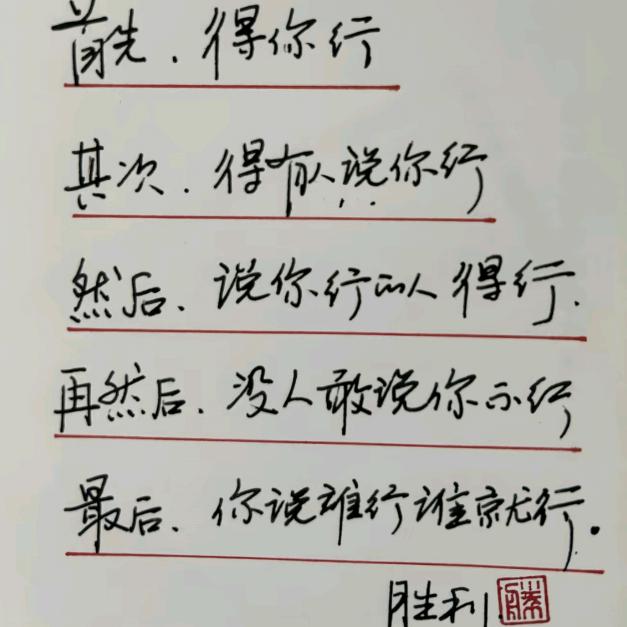 首先、得你行
其次、得有人说你行
然后、说你行的人得行.
再然后、没人敢说你不行
最后、你说谁行谁就行.
胜利
勝